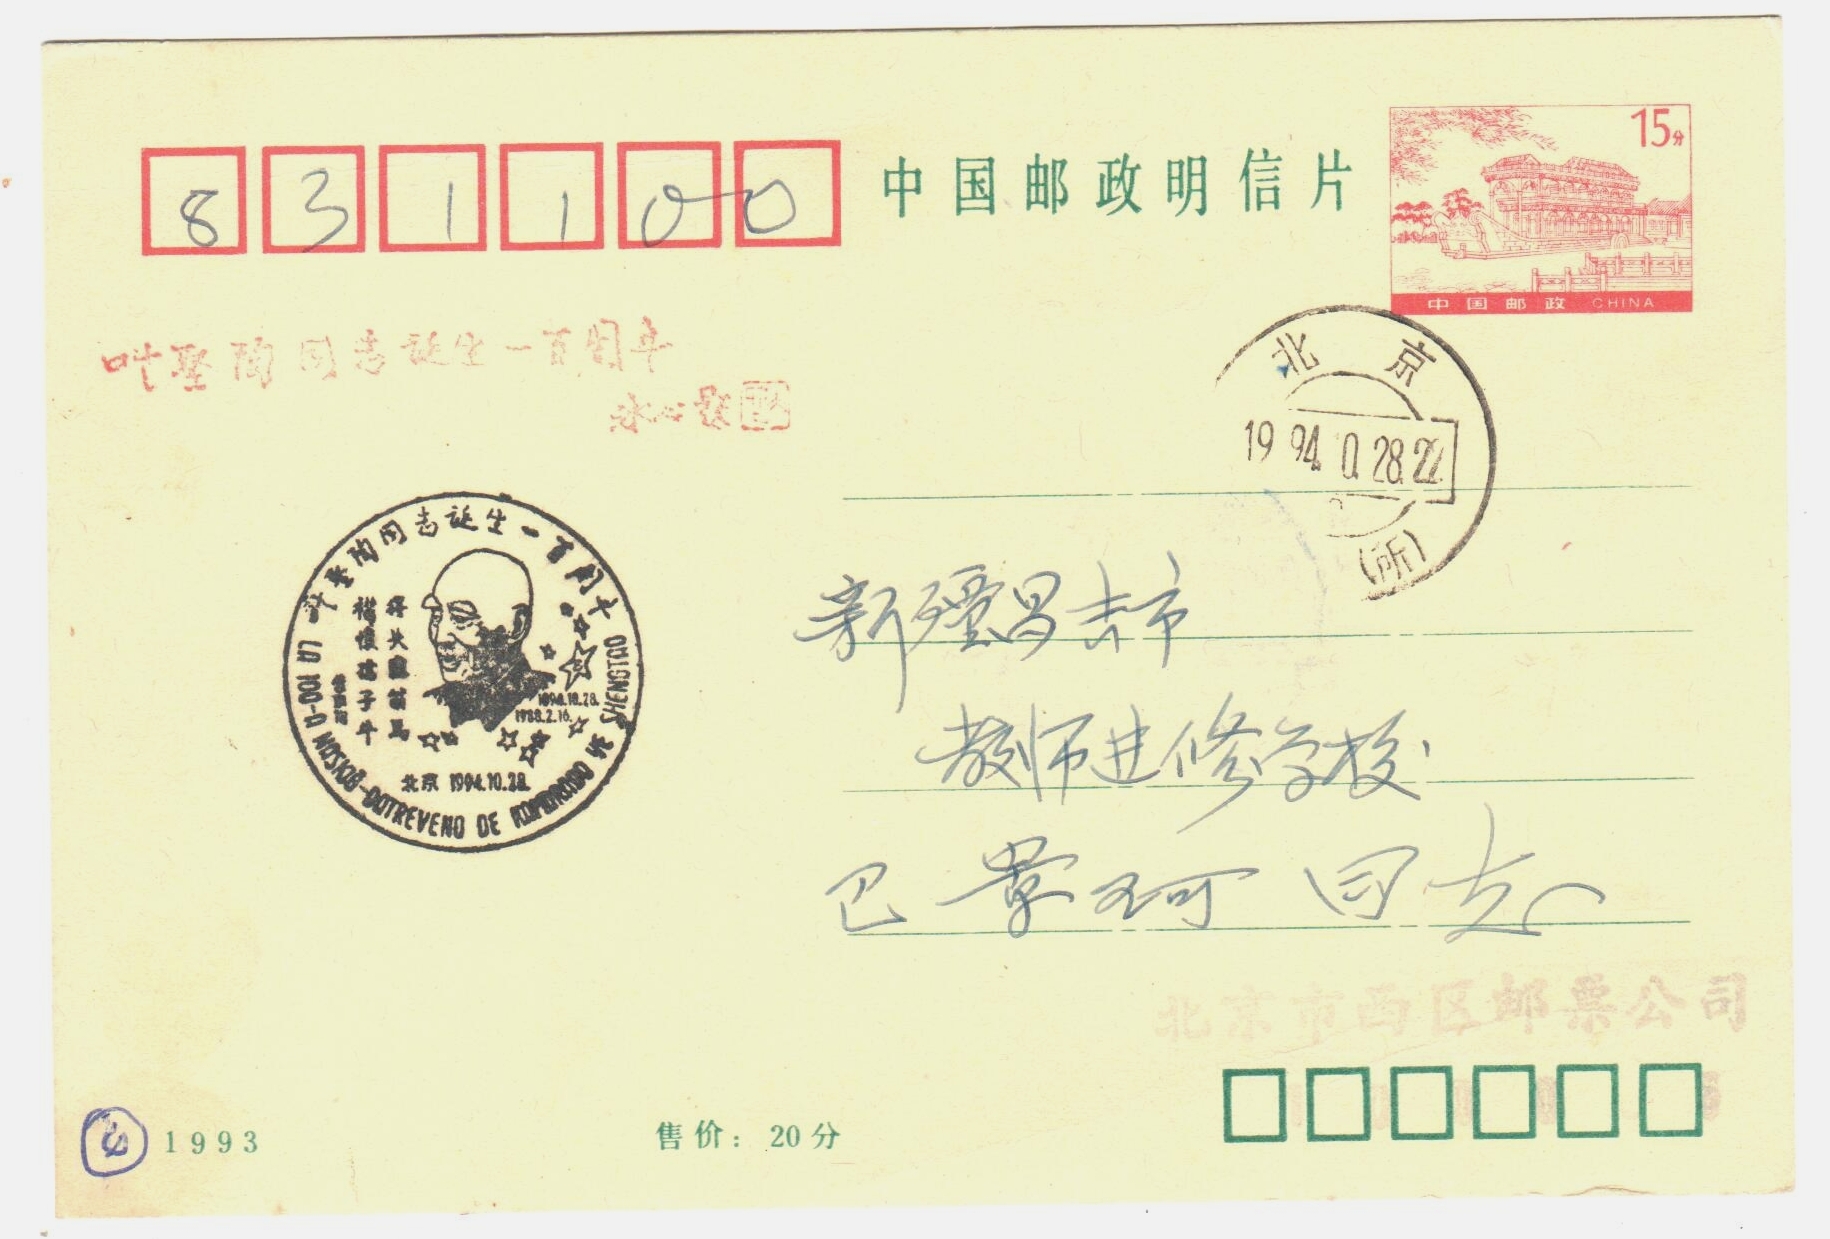 831100
中国邮政明信片
15分
中国邮政 CHINA
叶圣陶同志诞生一百周年
冰心题
北京
1994. 0.28.22
(所)
叶圣陶同志诞生一百周年
LA 100-A NASKIĜ-DATREVENO DE KAMARADO YE SHENGTAO
1894.10.28.
1988.2.16.
北京 1994.10.28.
新疆昌吉市
教师进修学校
巴景珂同志
北京市西区邮票公司
1993
售价：20分